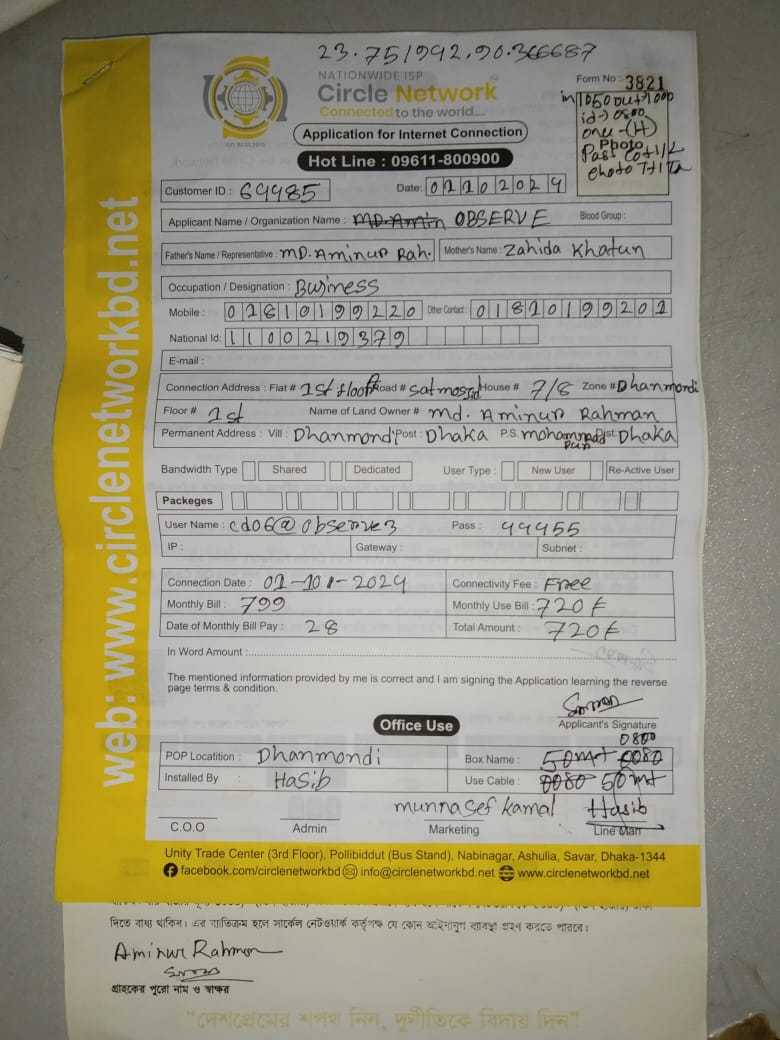 23.751942,90.366687
NATIONWIDE ISP
Circle Network
Connected to the world....
Form No : 3821
id-> 0800
one-(H)
Photo
Application for Internet Connection
Hot Line : 09611-800900
Customer ID : 69985 Date: 01102024
Applicant Name / Organization Name : MD. Amin OBSERVE Blood Group :
Father's Name / Representative : MD. Aminur Rah. Mother's Name : Zahida Khatun
Occupation / Designation : Business
Mobile : 01810199220 Other Contact : 01810199201
National Id: 1100219379
E-mail :
Connection Address : Flat # 1st floor Road # Satmosjid House # 7/8 Zone # Dhanmondi
Floor # 1st Name of Land Owner # Md. Aminur Rahman
Permanent Address : Vill : Dhanmondi Post : Dhaka P.S. mohammadpur Dist: Dhaka
Bandwidth Type Shared Dedicated User Type : New User Re-Active User
Packeges
User Name : cd06@observe3 Pass : 44455
IP : Gateway : Subnet :
Connection Date : 01-10-2024 Connectivity Fee : Free
Monthly Bill : 799 Monthly Use Bill : 720৳
Date of Monthly Bill Pay : 28 Total Amount : 720৳
In Word Amount :
The mentioned information provided by me is correct and I am signing the Application learning the reverse
page terms & condition.
Applicant's Signature
Office Use
0800
POP Locatition : Dhanmondi Box Name : 50mt 0080
Installed By : Hasib Use Cable : 0080 50mt
munnasef kamal Hasib
C.O.O Admin Marketing Line Man
Unity Trade Center (3rd Floor), Pollibiddut (Bus Stand), Nabinagar, Ashulia, Savar, Dhaka-1344
facebook.com/circlenetworkbd info@circlenetworkbd.net www.circlenetworkbd.net
web: www.circlenetworkbd.net
দিতে বাধ্য থাকিব। এর ব্যতিক্রম হলে সার্কেল নেটওয়ার্ক কর্তৃপক্ষ যে কোন আইনানুগ ব্যবস্থা গ্রহণ করতে পারবে।
Aminur Rahman
গ্রাহকের পুরো নাম ও স্বাক্ষর
"দেশপ্রেমের শপথ নিন, দুর্নীতিকে বিদায় দিন"